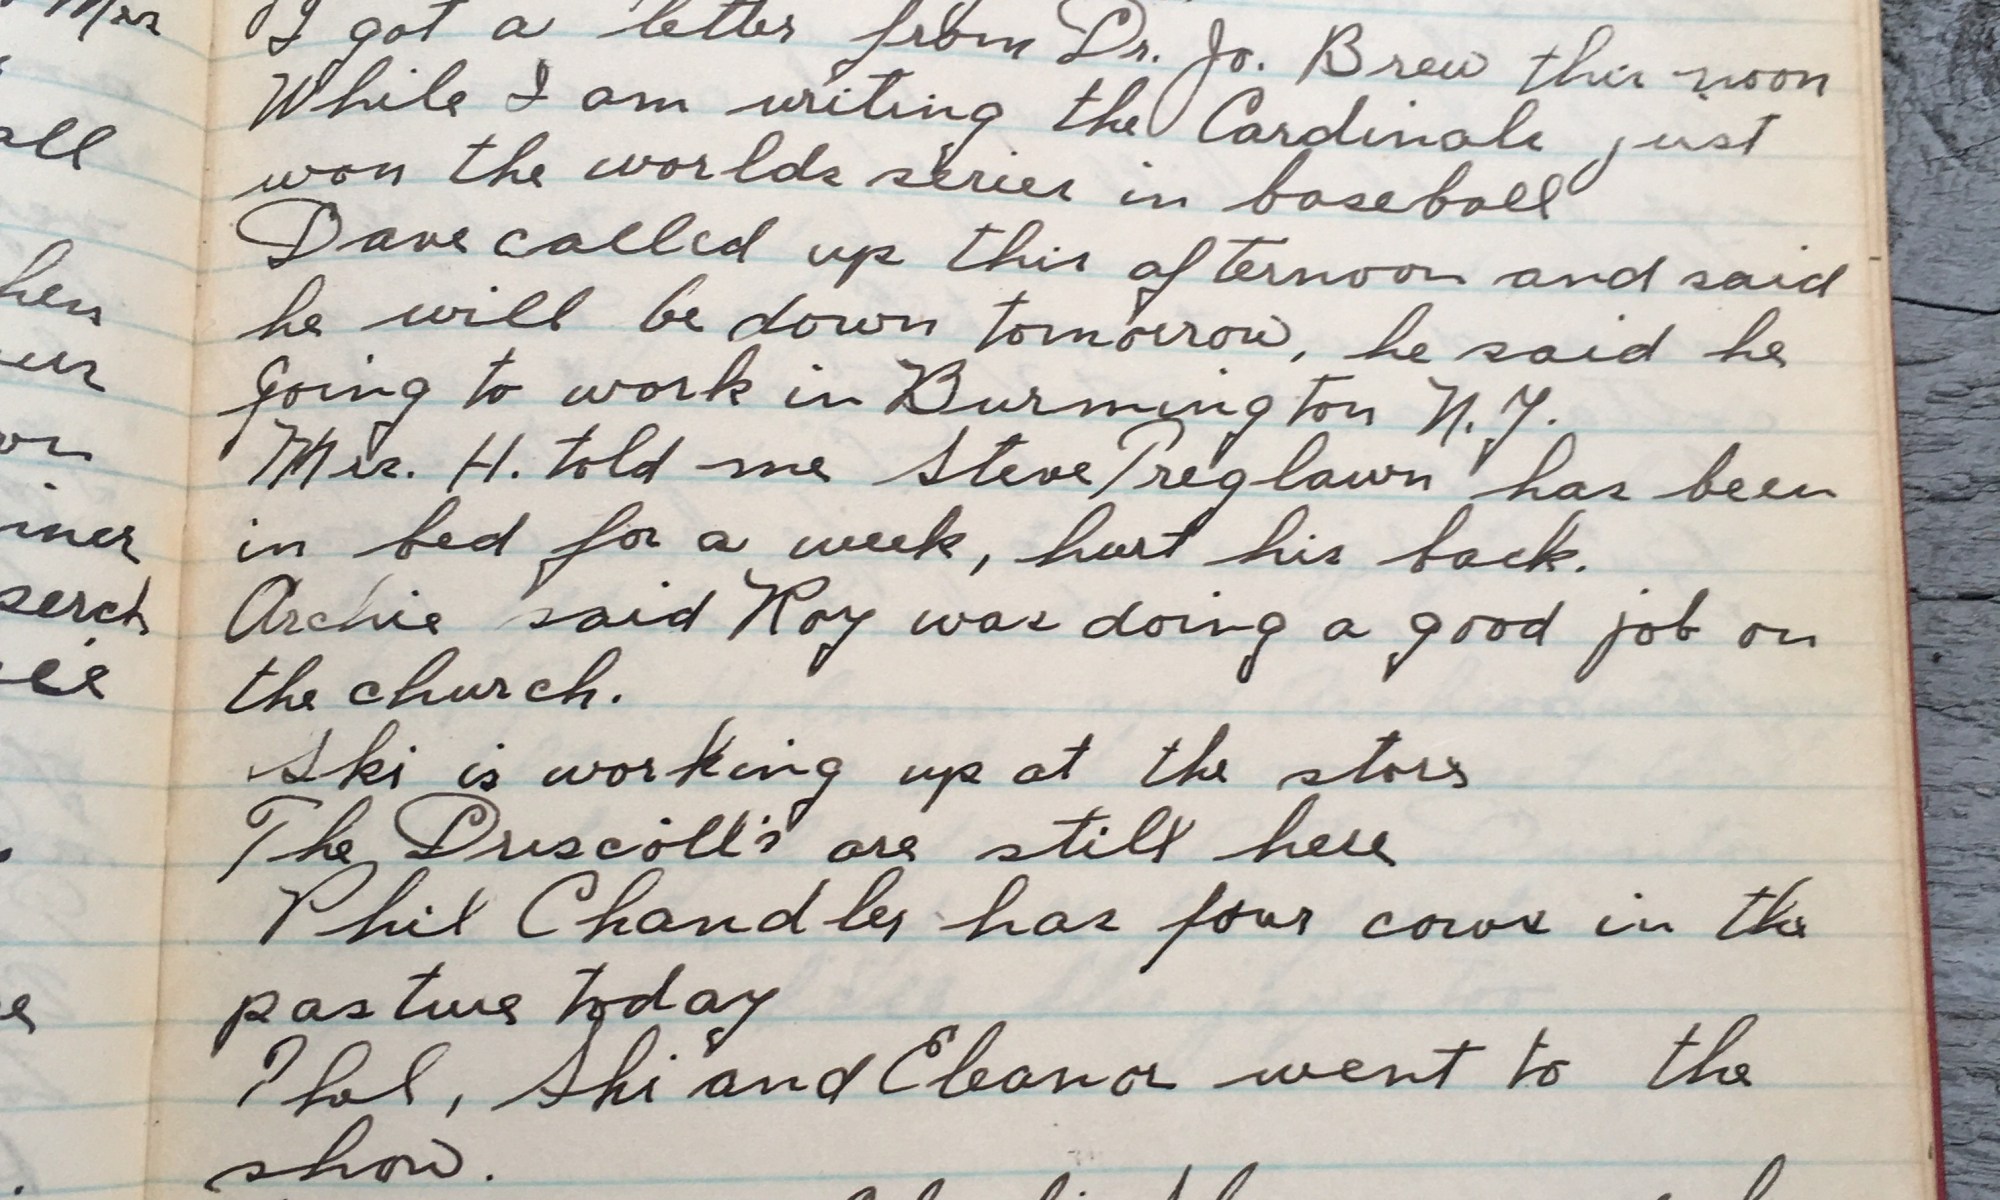 Mrs
all
hen
iner
serch
I got a letter from Dr. Jo. Brew this noon
While I am writing the Cardinals just
won the worlds series in baseball
Dave called up this afternoon and said
he will be down tomorrow, he said he
going to work in Burmington N.Y.
Mrs. H. told me Steve Preglawn has been
in bed for a week, hurt his back.
Archie said Roy was doing a good job on
the church.
Ski is working up at the store
The Driscoll's are still here
Phil Chandler has four cows in the
pasture today
Ski and Eleanor went to the
show.